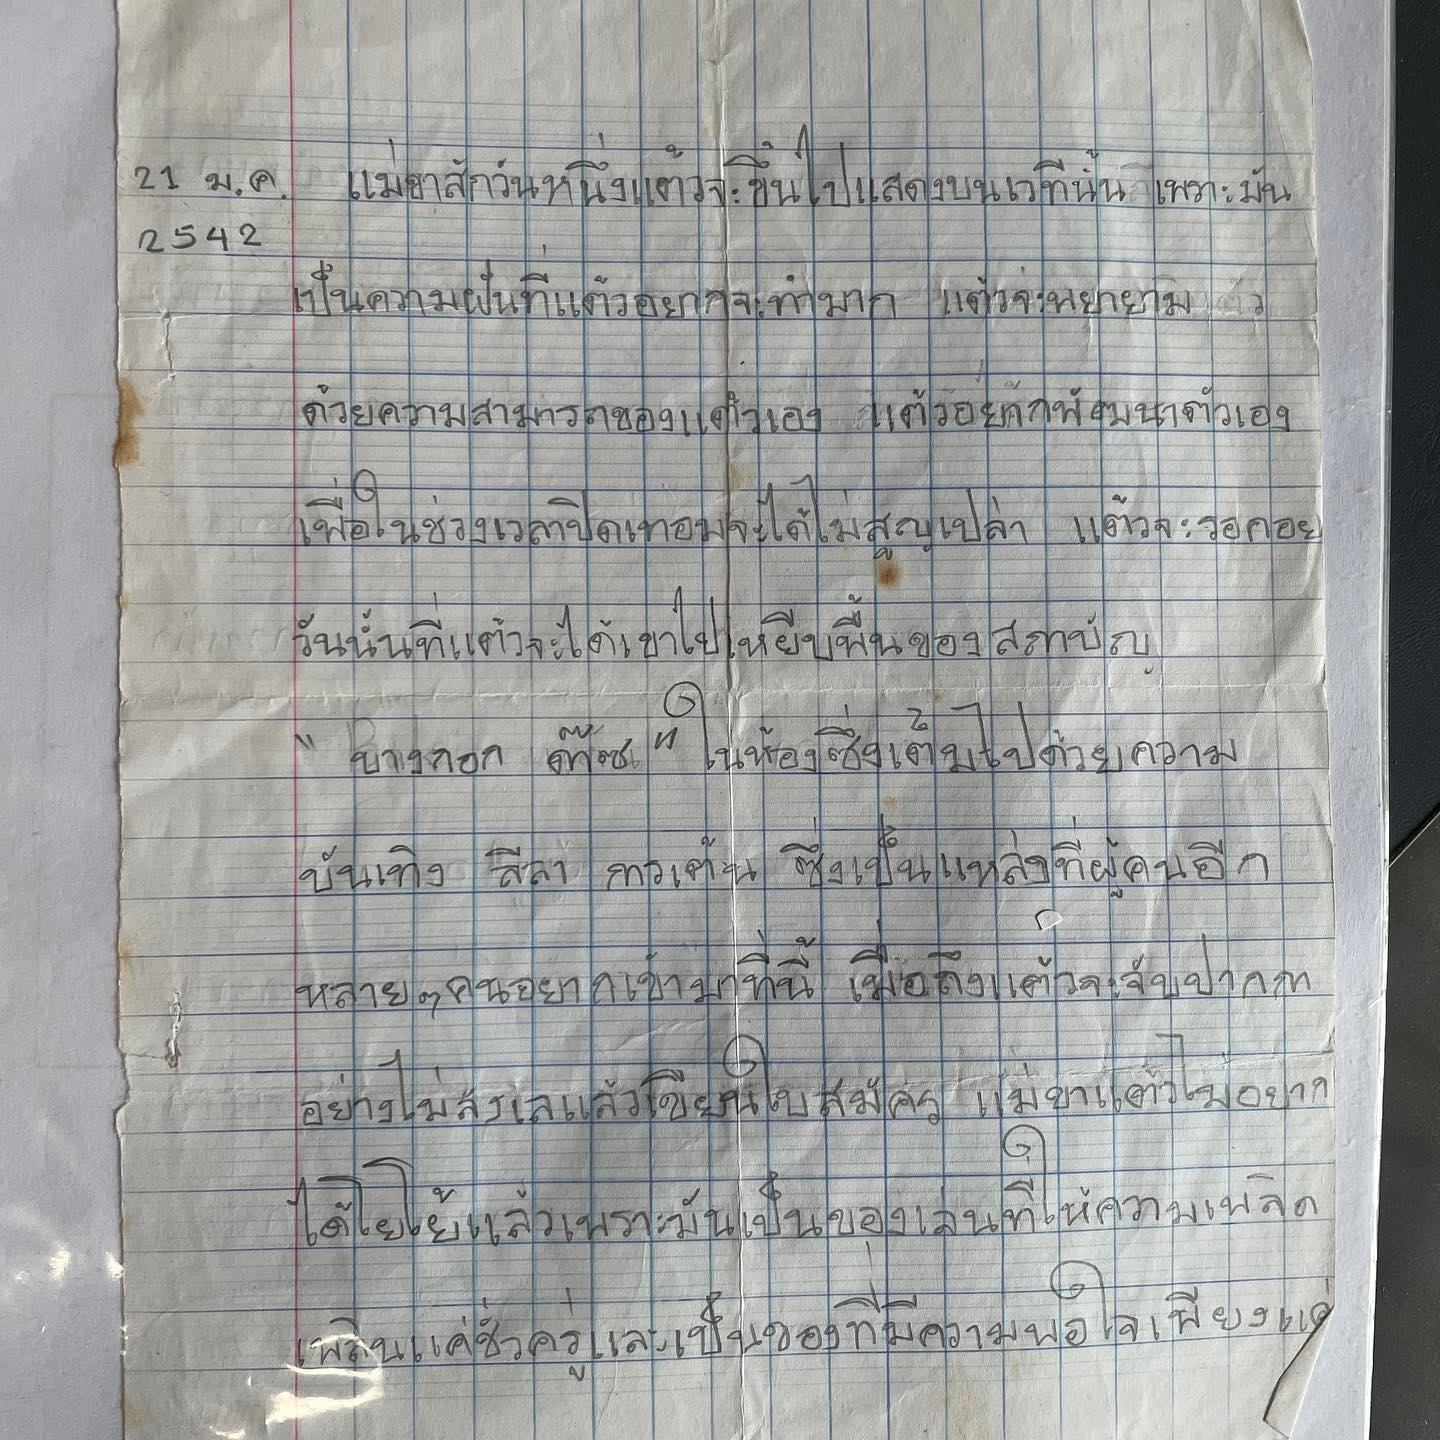 21 ม.ค. แม่ขาสักวันหนึ่งแต้วจะขึ้นไปแสดงบนเวทีนั้น เพราะมัน
2542
เป็นความฝันที่แต้วอยากจะทำมาก แต้วจะพยายาม
ด้วยความสามารถของแต้วเอง แต้วอยากพัฒนาตัวเอง
เพื่อในช่วงเวลาปิดเทอมจะได้ไม่สูญเปล่า แต้วจะรอคอย
วันนั้นที่แต้วจะได้เขาไปเหยียบพื้นของสถาบัญ
" บางกอก ด๊านซ์ " ในห้องซึ่งเต็มไปด้วยความ
บันเทิง ลีลา การเต้น ซึ่งเป็นแหล่งที่ผู้คนอีก
หลายๆคนอยากเข้ามาที่นี้ เมื่อถึงแต้วจะจับปากกา
อย่างไม่ลังเลแล้วเขียนใบสมัคร แม่ขาแต้วไม่อยาก
ได้โยโย้แล้วเพราะมันเป็นของเล่นที่ให้ความเพลิด
เพลินแค่ชั่วครู่และเป็นของที่มีความพอใจเพียงแค่